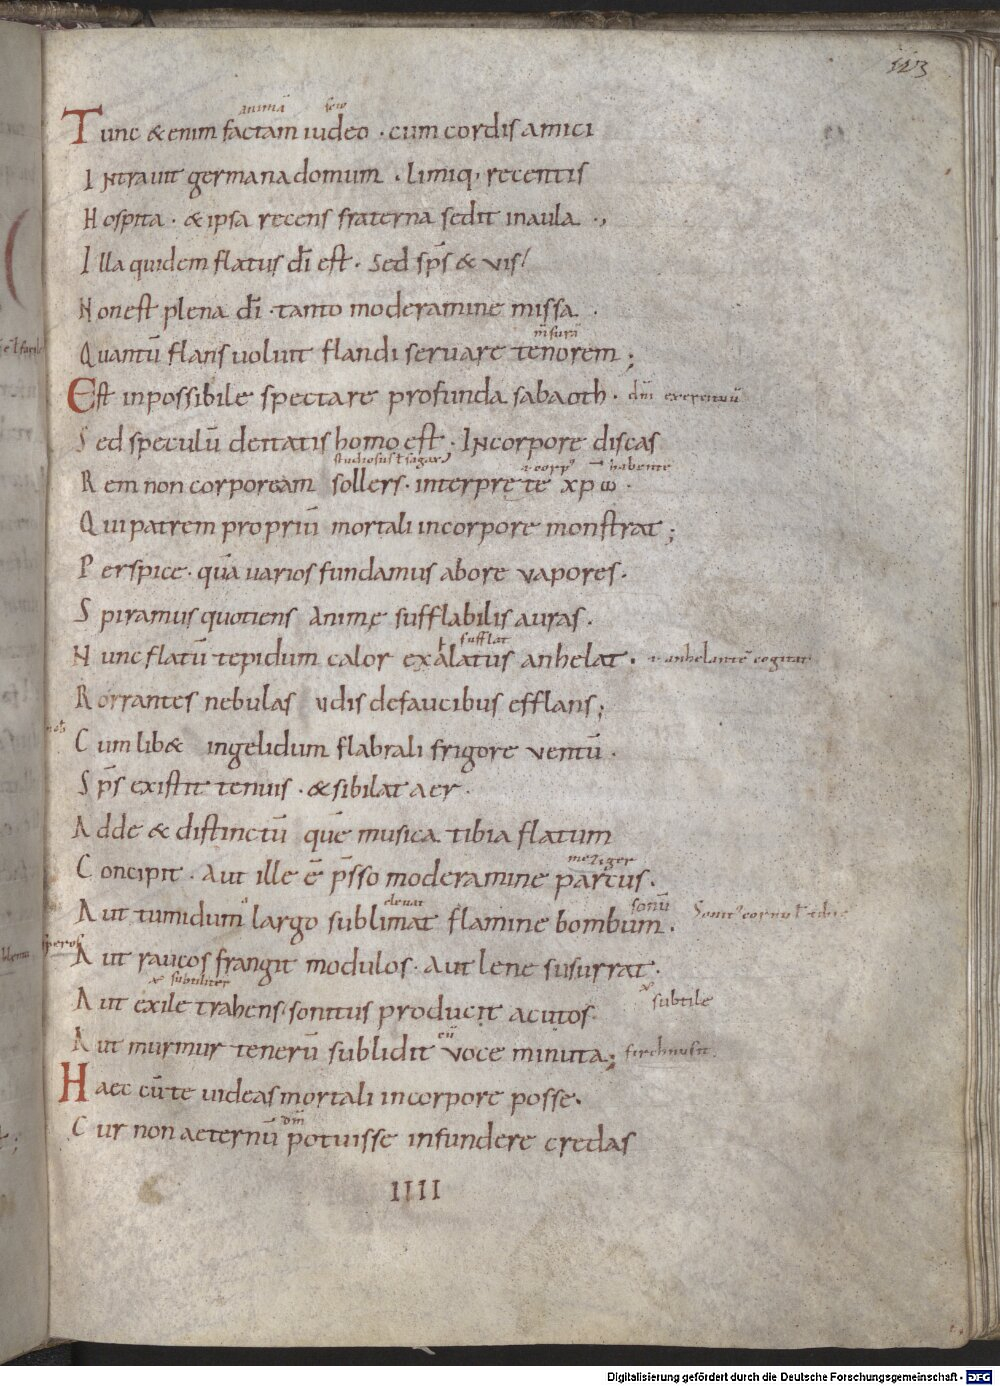 123
animā scio
Tunc & enim factam iudeo · cum cordis amici
Intrauit germana domum · limiq; recentis
Hospita · & ipsa recens fraterna sedit in aula ·,
Illa quidem flatus dī est · Sed sp̄s & vis/
Non est plena dī · tanto moderamine missa ·
m̄surā
Quantū flans uoluit flandi seruare tenorem ;
Est inpossibile spectare profunda sabaoth · dn̄i exercituū
Sed speculū deitatis homo est · Incorpore discas
studiosus ł sagax
a corp habente
Rem non corpoream sollers · interpręte xpω ·
Qui patrem propriū mortali incorpore monstrat ;
Perspice · quā uarios fundamus abore vapores ·
Spiramus quotiens animę sufflabilis auras ·
sufflat
Nunc flatū tepidum calor exalatus anhelat · anhelante cogitat
Rorrantes nebulas udis defaucibus efflans ;
Cum lib& ingelidum flabrali frigore ventū ·
Sp̄s existit tenuis · & sibilat aer ·
Adde & distinctū quē musica tibia flatum
meziger
Concipit · Aut ille ē p̄sso moderamine partus ·
eleuat sonū
Aut tumidum largo sublimat flamine bombum · Sonit cornu ł tibie
Aut raucos frangit modulos · Aut lene susurrat ·
subtiliter
subtile
Aut exile trahens · sonitus producit acutos ·
eū
Aut murmur tenerū sublidit voce minuta ; firchnusit
Haec cū te uideas mortali incorpore posse ·
dm̄
Cur non aeternū potuisse infundere credas
IIII
Digitalisierung gefördert durch die Deutsche Forschungsgemeinschaft - DFG